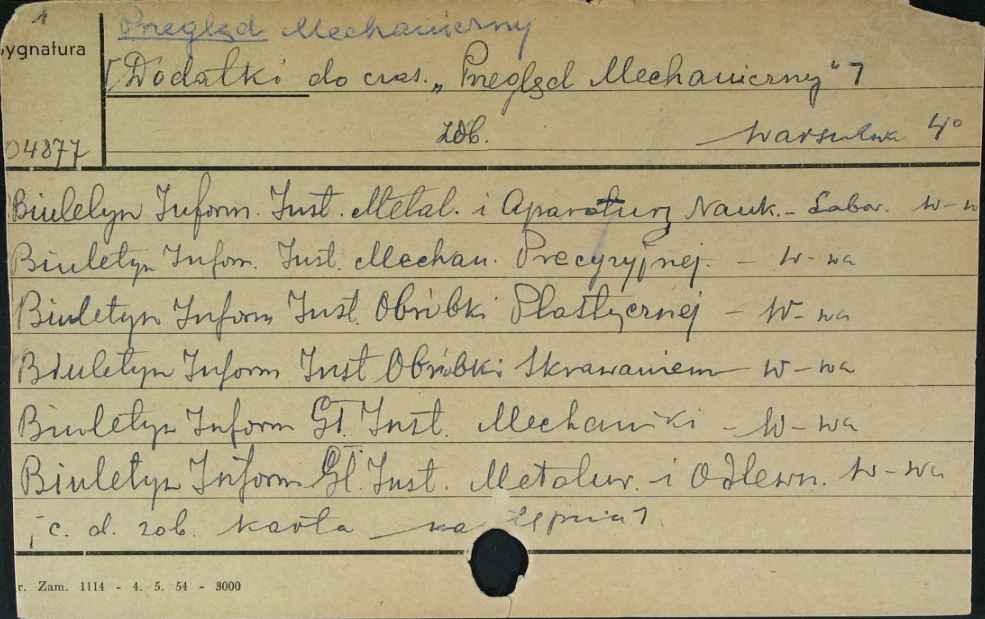 1
Przegląd Mechaniczny
Sygnatura
[Dodatki do czas. „Przegląd Mechaniczny"]
zob. Warszawa 4°
04877
Biuletyn Inform. Inst. Metal. i Aparatury Nauk.- Labor. W-w
Biuletyn Inform. Inst. Mechan. Precyzyjnej. - W-wa
Biuletyn Inform Inst. Obróbki Plastycznej - W-wa
Biuletyn Inform Inst Obróbki Skrawaniem - W-wa
Biuletyn Inform Gł. Inst. Mechaniki - W-wa
Biuletyn Inform Gł. Inst. Metalur. i Odlewn. W-wa
[c. d. zob. karta następna]
r. Zam. 1114 - 4. 5. 54 - 3000